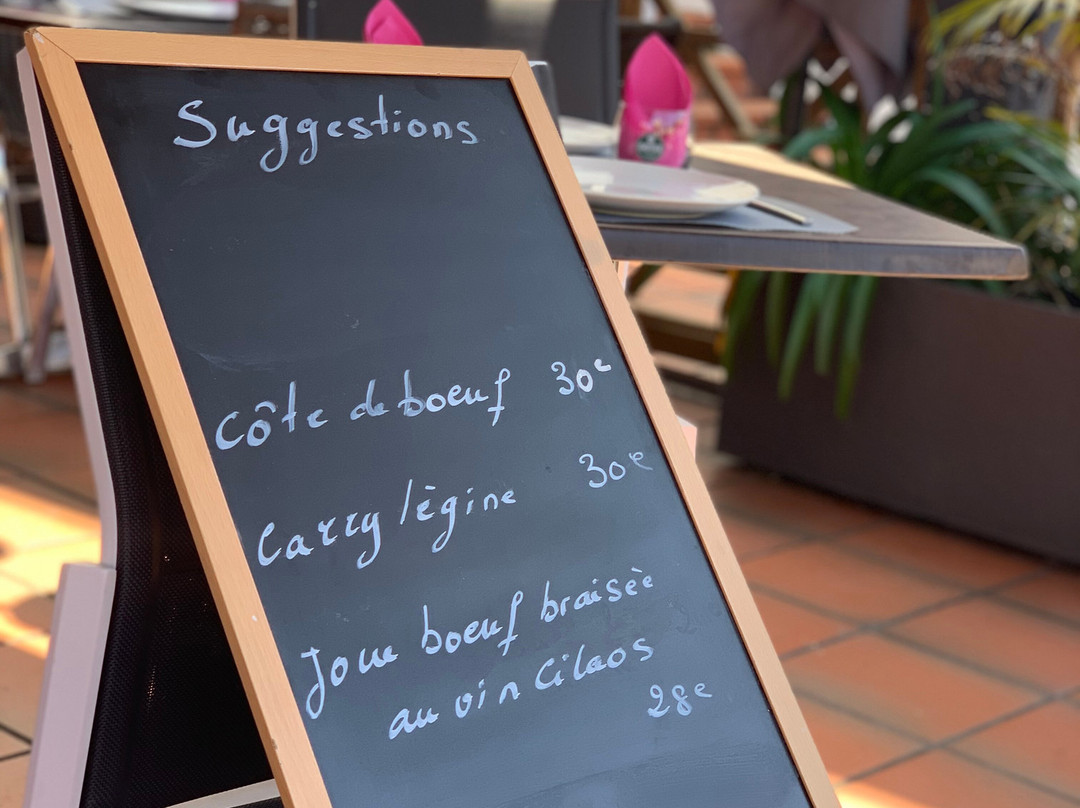 Suggestions
Côte de boeuf 30€
Carry lègine 30€
Joue boeuf braisèe
au vin Cilaos
28€